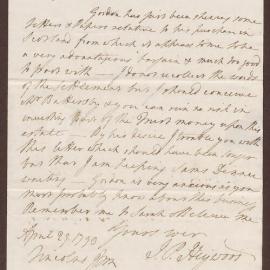 Gordon has just been shewing me some
Letters & Papers relative to his purchase in
Scotland from which it appears to me to be
a very advantageous bargain & much too good
to part with — I do not recollect the words
of the settlement but I should conceive
Mr Bathersby & you can run no risk in
investing part of the Trust money upon this
estate — By his desire I trouble you with
this letter which should have been longer
but that I am keeping Sams Dinner
waiting — Gordon is very anxious as you
most probably know about this business
Remember me to Sarah & believe me
Yours ever
J. P. Heywood
April 29 1790
Lincolns Inn